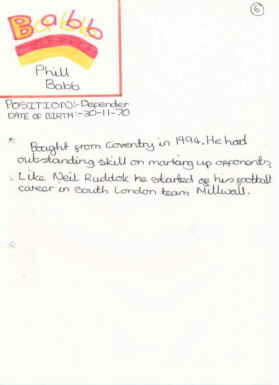 6
Babb
Phill
Babb
POSITION:- Defender
DATE OF BIRTH:- 30-11-70
Bought from Coventry in 1994. He had
outstanding skill on marking up opponents,
Like Neil Ruddok he started of his football
career in South London team Millwall.